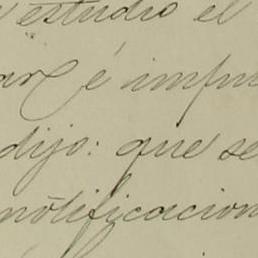 estudio el
é impu
dijo: que se
notificacion